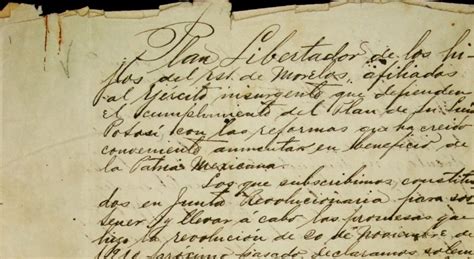 Plan Libertador de los hi-
jos del Est. de Morelos, afiliados
al Ejército insurgente que defienden
el cumplimiento del Plan de Sn Luis
Potosí con las reformas que ha creido
conveniente aumentar en beneficio de
la Patria Mexicana.
Los que subscribimos, constitui
dos en Junta Revolucionaria, para sos
tener y llevar a cabo las promesas que
hizo la revolución de 20 de Noviembre de
1910 próximo pasado declaramos solem